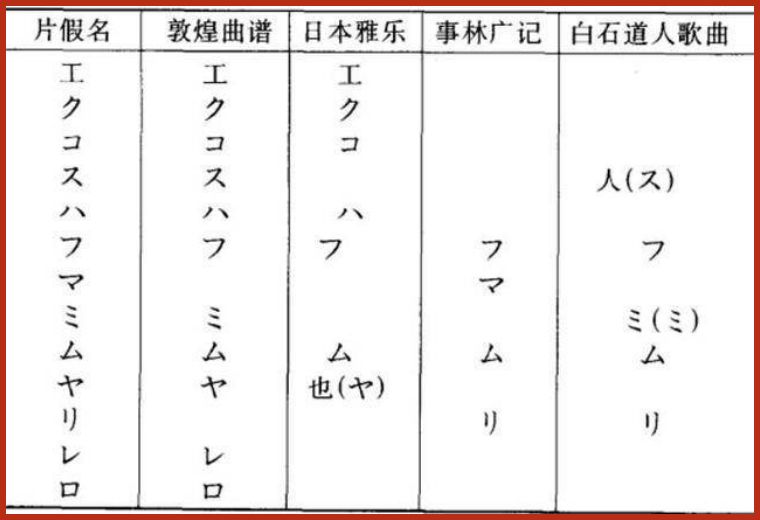 片假名 敦煌曲谱 日本雅乐 事林广记 白石道人歌曲
エ エ エ
ク ク ク
コ コ コ
ス ス 人(ス)
ハ ハ ハ
フ フ フ フ フ
マ マ
ミ ミ ミ(ミ)
ム ム ム ム ム
ヤ ヤ 也(ヤ)
リ リ リ
レ レ
ロ ロ